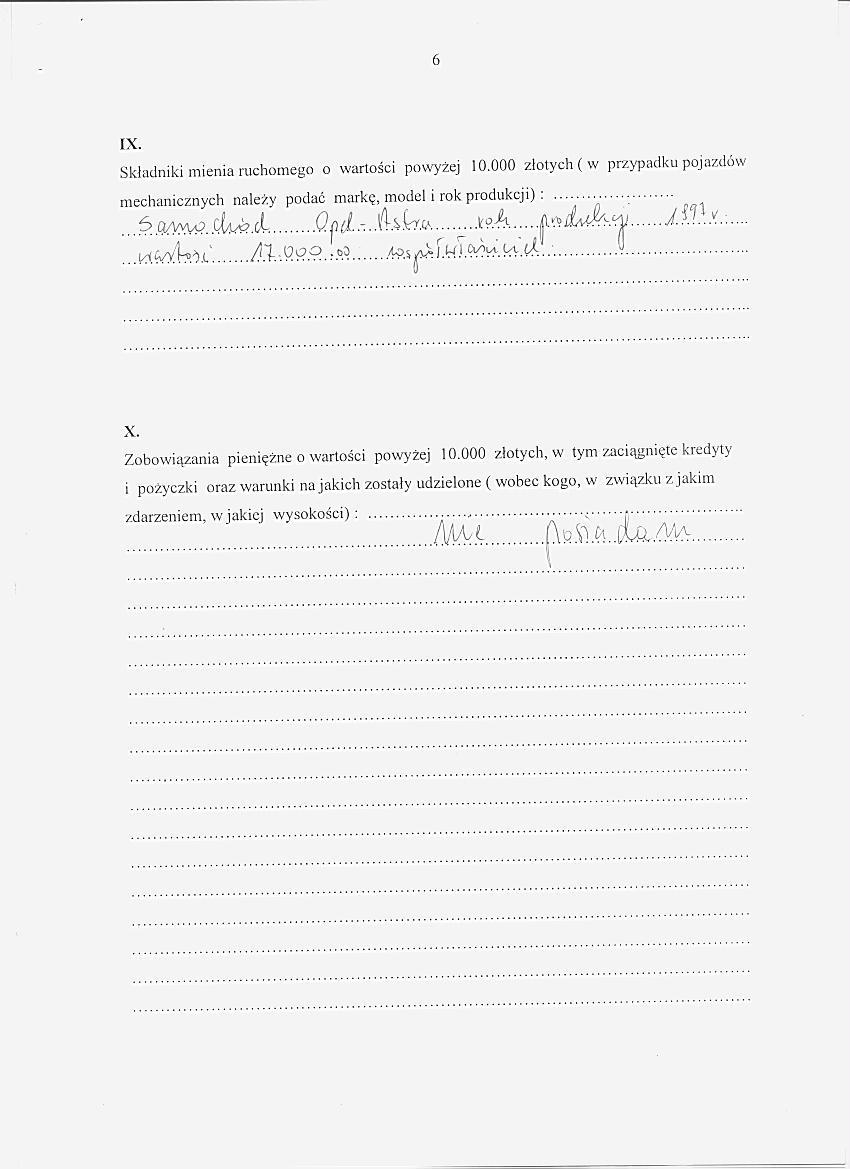 6
IX.
Składniki mienia ruchomego o wartości powyżej 10.000 złotych ( w przypadku pojazdów
mechanicznych należy podać markę, model i rok produkcji) : .....................
Samochód Opel - Astra rok produkcji 1997 r.
wartość 17.000,00 współwłaściciel
X.
Zobowiązania pieniężne o wartości powyżej 10.000 złotych, w tym zaciągnięte kredyty
i pożyczki oraz warunki na jakich zostały udzielone ( wobec kogo, w związku z jakim
zdarzeniem, w jakiej wysokości) : .....................
Nie posiadam